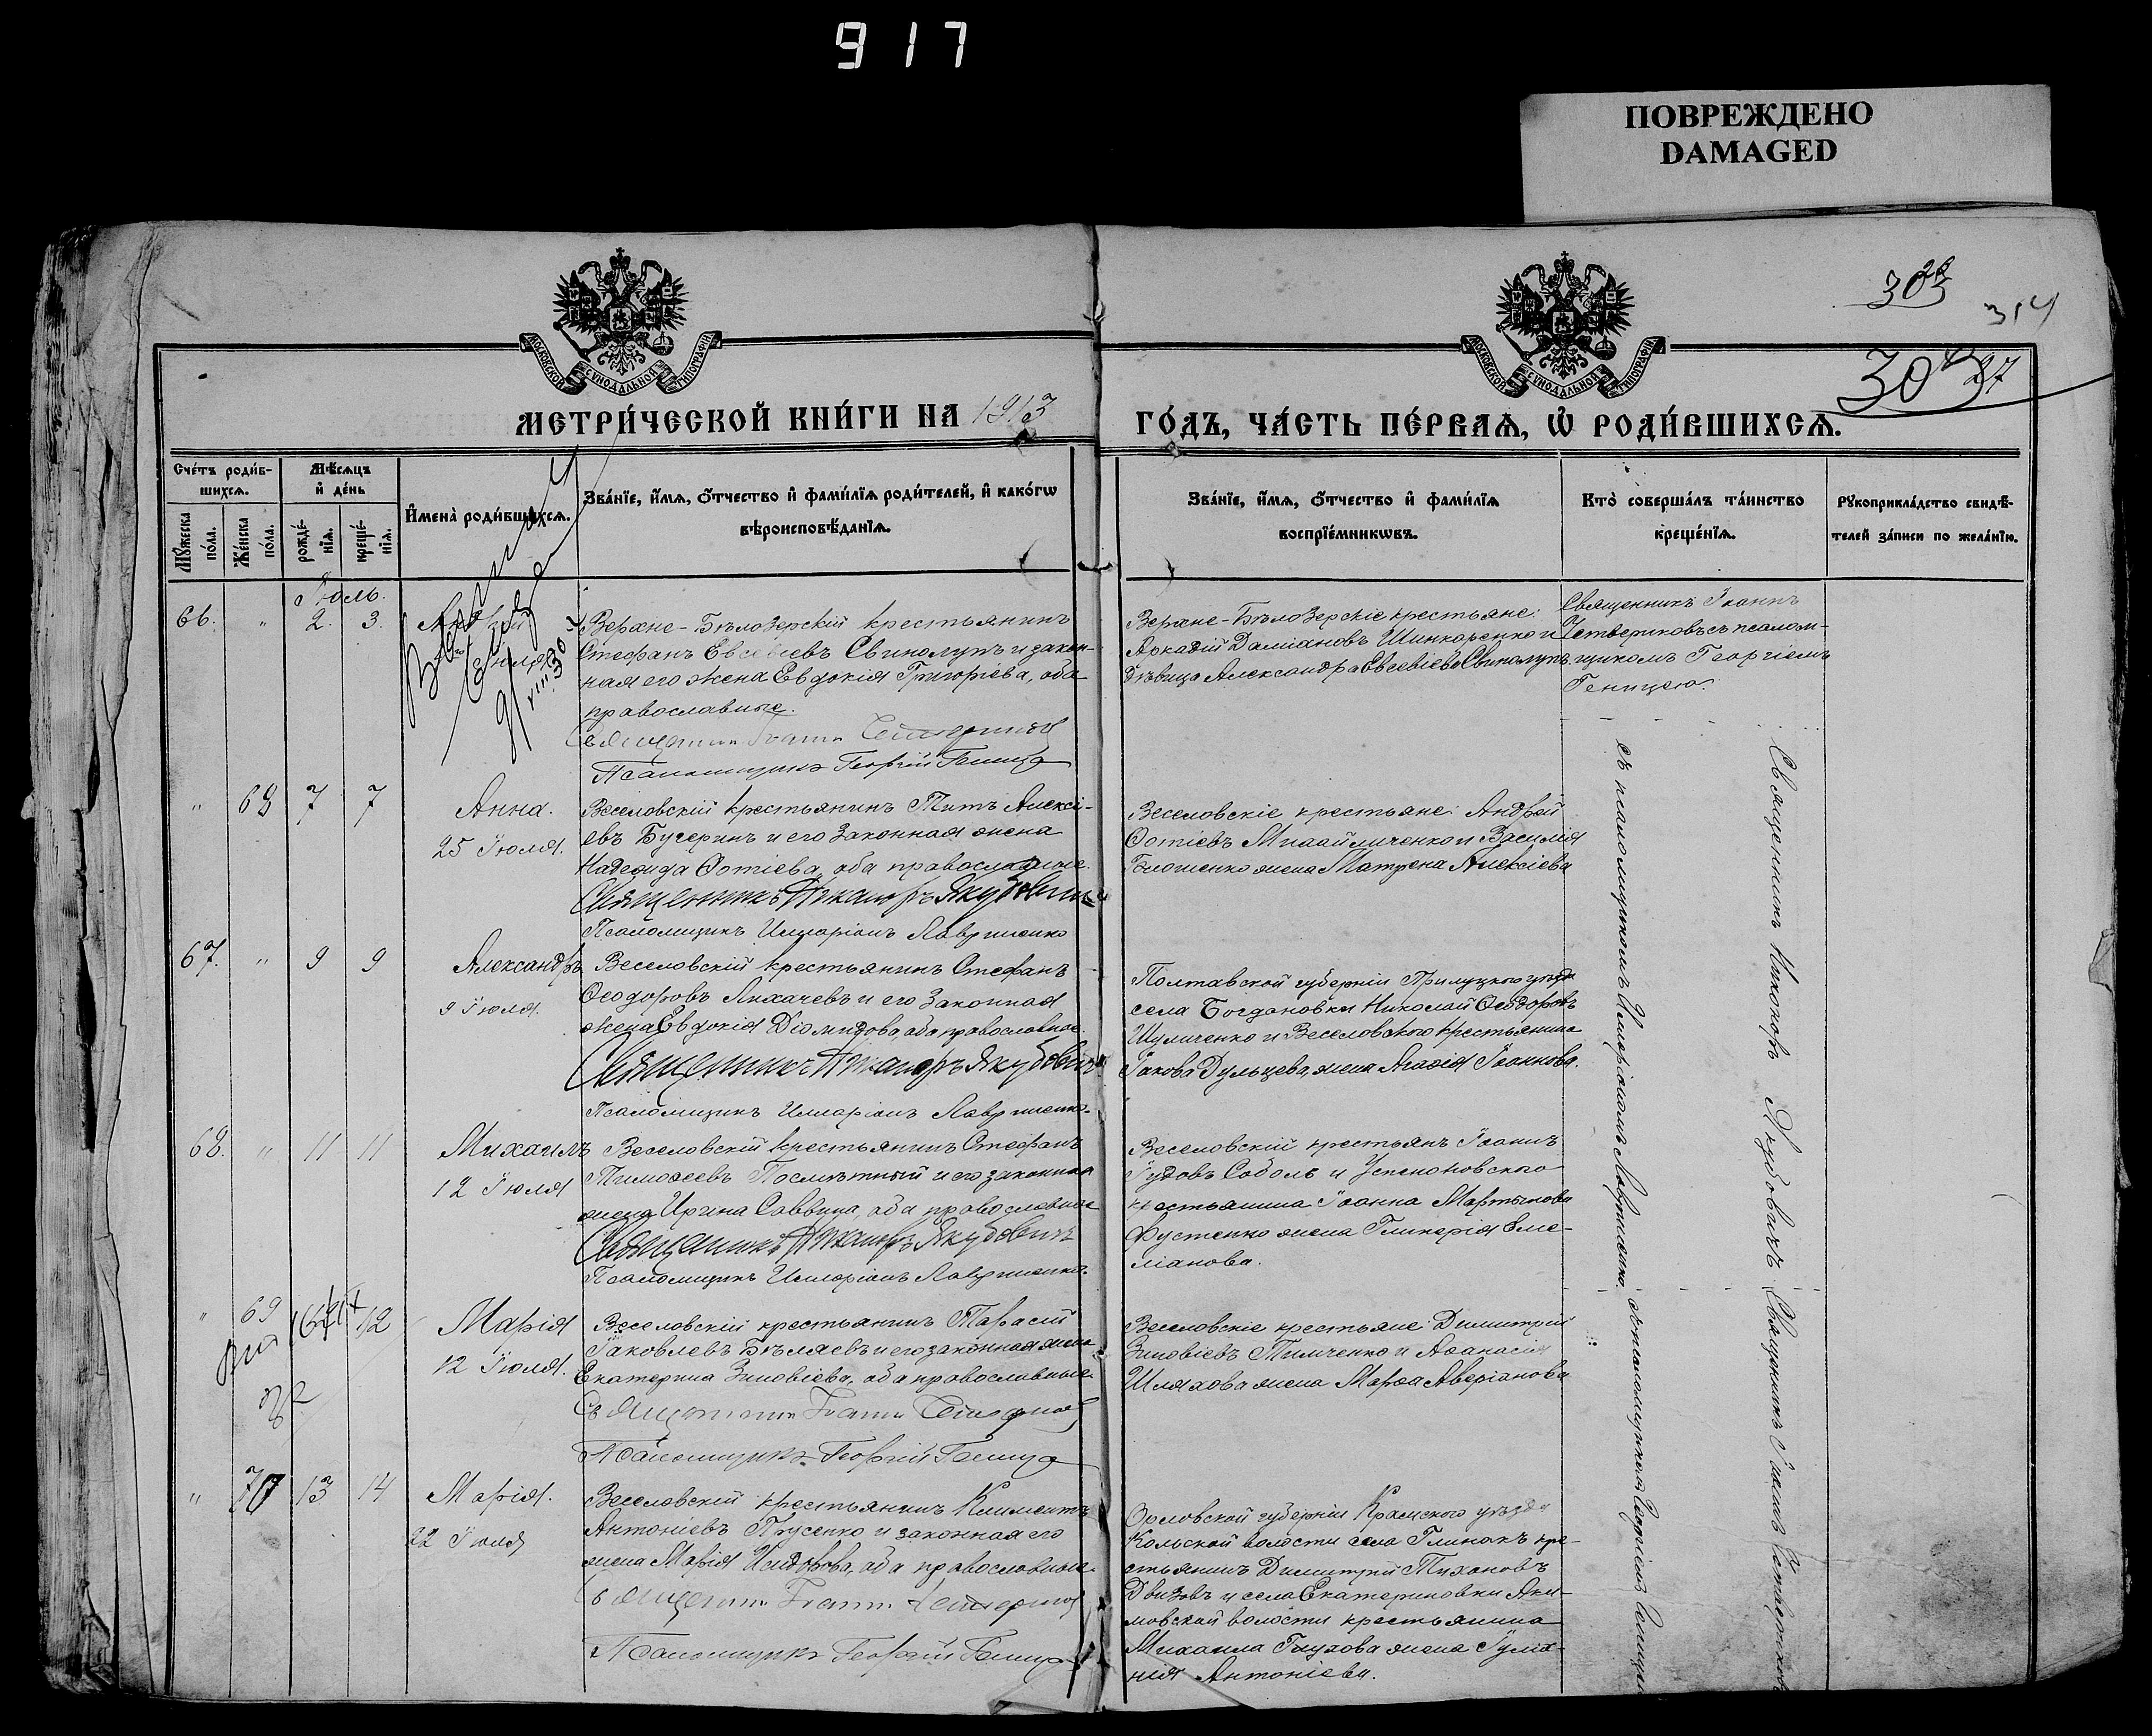 917
ПОВРЕЖДЕНО
DAMAGED
314
МОСКОВСКОЙ СѴНОДАЛЬНОЙ ТИПОГРАФІИ
МОСКОВСКОЙ СѴНОДАЛЬНОЙ ТИПОГРАФІИ
МЕТРИ́ЧЕСКОЙ КНИ́ГИ НА 1913
ГО́ДЪ, ЧА́СТЬ ПЕ́РВАѦ, Ѡ҆ РОДИ́ВШИХСѦ.
Сче́тъ роди́в-
шихсѧ.
Мѣ́сѧцъ
и҆ де́нь
Мꙋ́жеска
по́ла.
Же́нска
по́ла.
рожде́-
нїѧ.
креще́-
нїѧ.
И҆мена̀ роди́вшихсѧ.
Зва́нїе, и҆́мѧ, ѻ҆́тчество и҆ фами́лїѧ роди́телей, и҆ како́гѡ
вѣроисповѣ́данїѧ.
Зва́нїе, и҆́мѧ, ѻ҆́тчество и҆ фами́лїѧ
воспрїе́мникѡвъ.
Кто̀ соверша́лъ та́инство
креще́нїѧ.
Рꙋкоприкла́дство свидѣ́-
телей за́писи по жела́нїю.
Іюль.
66. " 2. 3.
Верхне-Бѣлозерскій крестьянинъ
Стефанъ Евсевіевъ Свинолупъ и закон-
ная его жена Евдокія Григоріева, оба
православные.
Священникъ Іоаннъ Четвериковъ
Псаломщикъ Георгій Геница
Верхне-Бѣлозерскіе крестьяне:
Аркадій Даміановъ Шинкаренко и
дѣвица Александра Евсевіева Свинолупъ.
Священникъ Іоаннъ
Четвериковъ съ псалом-
щикомъ Георгіемъ
Геницею.
" 68 7 7 Анна.
25 Іюля.
Веселовскій крестьянинъ Титъ Алексі-
евъ Бусеринъ и его законная жена
Надежда Фотіева, оба православные.
Священникъ Никаноръ Якубовичъ
Псаломщикъ Иларіонъ Лавриненко
Веселовскіе крестьяне: Андрей
Фотіевъ и Василія
жена Матрена Алексіева
67. " 9 9 Александръ
9 Іюля.
Веселовскій крестьянинъ Стефанъ
Ѳеодоровъ Лихачевъ и его законная
жена Евдокія Діомидова, оба православные.
Священникъ Никаноръ Якубовичъ
Псаломщикъ Иларіонъ Лавриненко.
Полтавской губерніи Прилуцкого уѣзда
села Богдановки Николай Ѳеодоровъ
Шуличенко и Веселовского крестьянина
Іакова Дульцева, жена Агафія Іоаннова.
68. " 11 11 Михаилъ
12 Іюля
Веселовскій крестьянинъ Стефанъ
Тимоѳеевъ Посмѣтный и его законная
жена Ирина Саввина, оба православные
Священникъ Никаноръ Якубовичъ
Псаломщикъ Иларіонъ Лавриненко.
Веселовскій крестьянъ Іоаннъ
Іудовъ Соболь и Успеновского
крестьянина Іоанна Мартынова
Фустенко жена Гликерія Еме-
ліанова.
" 69 12 Марія
12 Іюля.
Веселовскій крестьянинъ Тарасій
Іаковлевъ Бѣляевъ и его законная жена
Екатерина Зиновіева, оба православные.
Священникъ Іоаннъ Четвериковъ
Псаломщикъ Георгій Геница
Веселовскіе крестьяне: Димитрій
Зиновіевъ Тимченко и Аѳанасія
Шляхова жена Марѳа Аверіанова
" 70 13 14 Марія.
22 Іюля
Веселовскій крестьянинъ Климентъ
Антоніевъ Прусенко и законная его
жена Марія Исидорова, оба православные.
Священникъ Іоаннъ Четвериковъ
Псаломщикъ Георгій Геница
Орловской губерніи Крамского уѣзда
Кольской волости села Глинокъ кре-
стьянинъ Димитрій Тихоновъ
Двизовъ и села Екатериновки Аки-
мовской волости крестьянина
Михаила Глухова жена Іуліа-
нія Антоніева.
Священникъ Никаноръ Якубовичъ
съ псаломщикомъ Иларіономъ Лавриненко.
Священникъ Іоаннъ Четвериковъ
съ псаломщикомъ Георгіемъ Геницею